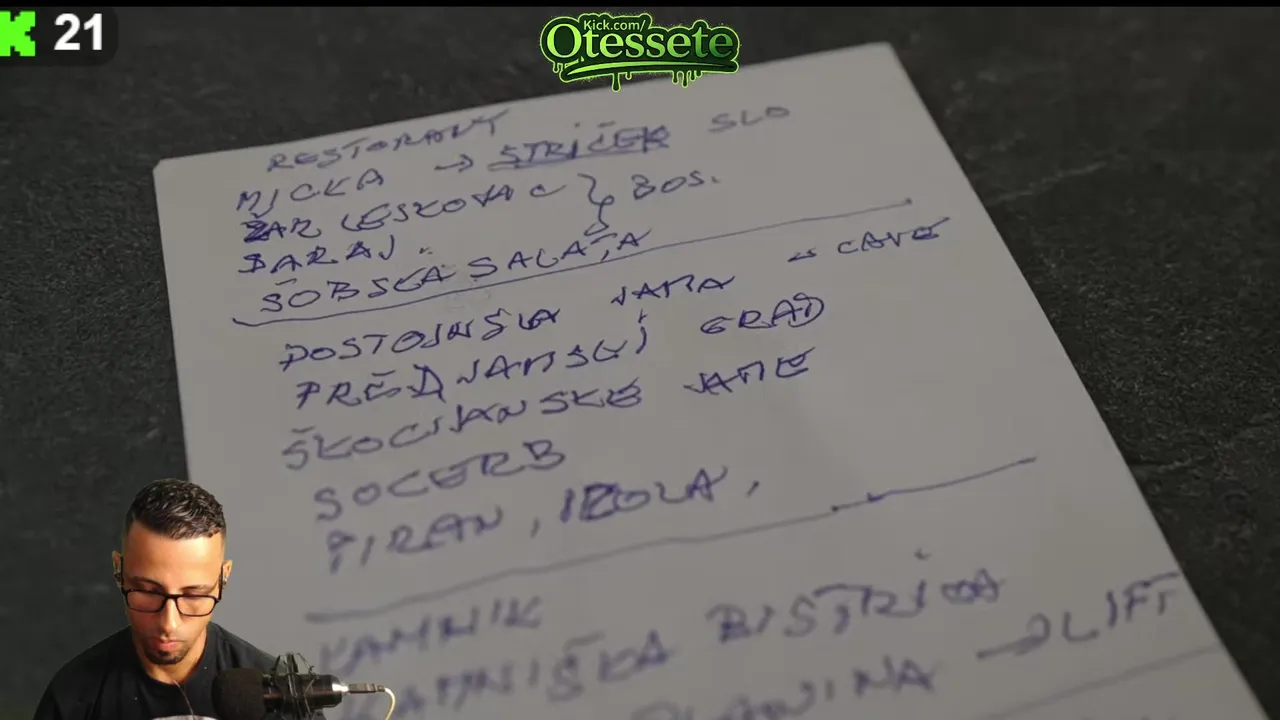 21
Kick.com/
Otessete
RESTORANT
MICKA → STRIČEK SLO
ŽAR LESKOVAC } BOS.
SARAJ
ŠOBSKA SALATA
POSTOJNSKA JAMA - CAVE
PREDJAMSKI GRAD
ŠKOCJANSKE JAME
SOCERB
PIRAN, IZOLA,
KAMNIK
KAMNIŠKA BISTRICA
PLANINA → LIFT